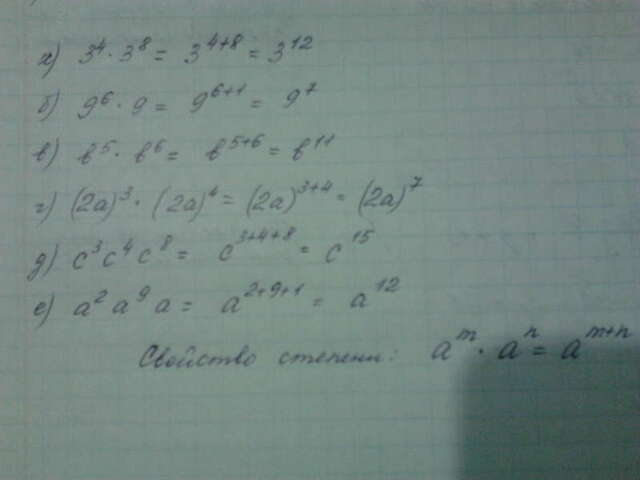 а) 3⁴ · 3⁸ = 3⁴⁺⁸ = 3¹²
б) 9⁶ · 9 = 9⁶⁺¹ = 9⁷
в) b⁵ · b⁶ = b⁵⁺⁶ = b¹¹
г) (2a)³ · (2a)⁴ = (2a)³⁺⁴ = (2a)⁷
д) c³ c⁴ c⁸ = c³⁺⁴⁺⁸ = c¹⁵
е) a² a⁹ a = a²⁺⁹⁺¹ = a¹²
Свойство степени: aᵐ · aⁿ = aᵐ⁺ⁿ